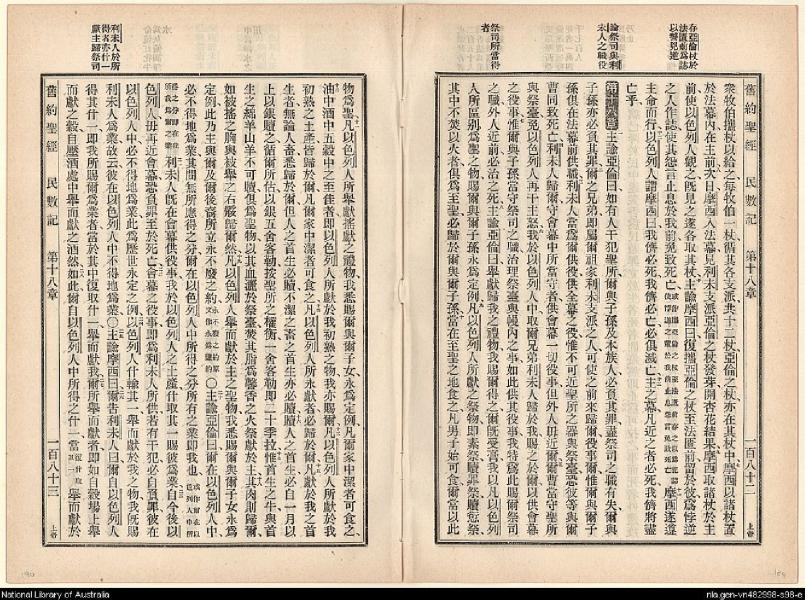 舊約聖經　民數記　第十八章　一百八十二
存亞倫杖於
法匱前為誌
以警見逆
衆牧伯攜杖以給之每牧伯一杖循其各支派共十二杖亞倫之杖亦在其杖中摩西以諸杖置
於法幕內在主前次日摩西入法幕見利未支派亞倫之杖發芽開杏花結果摩西取諸杖於主
前使以色列人觀之既見之遂各取其杖主諭摩西曰復攜亞倫之杖至法匱前留於彼為悖逆
之人作誌使其怨言止息於我前免致死亡
摩西遂遵
主命而行以色列人謂摩西曰我儕必死我儕必亡必俱滅亡主之幕凡近之者必死我儕將盡
亡乎
論祭司與利
未人之職役
第十八章主諭亞倫曰如有人干犯聖所爾與爾子孫及本族人必負其罪盡祭司之職有失爾與
子孫亦必負其罪爾之兄弟即爾祖家利未支派之人可使之前來歸爾役事爾惟爾與爾子
孫俱在法幕前供職利未人當為爾供役供全幕之役惟不可近聖所之器與祭臺恐彼等與爾
曹同致死亡利未人歸爾守會幕中所當守者供會幕一切役事但外人毋近爾爾曹當守聖所
與祭臺免以色列人再干主怒我於以色列人中取爾兄弟利未人歸於我賜之於爾以供會幕
之役事惟爾與子孫當守祭司之職治理祭臺與幔內之事如此供其役事我特為此賜爾祭司
之職外人近前必治之死主諭亞倫曰舉獻歸我之禮物我賜爾得之爾既受膏我以凡以色列
祭司所當得
者
人所區別為聖之物賜爾與爾子孫永為定例凡以色列人所獻之祭物即素祭贖罪祭贖愆祭
其中不焚以火者俱為至聖必歸於爾與爾子孫當在至聖之地食之凡男子始可食爾當以此
物為聖凡以色列人所舉獻搖獻之禮物我悉賜爾與爾子女永為定例凡爾家中潔者可食之
油中酒中五穀中之至佳者即以色列人所獻於我初熟之物我亦賜爾凡以色列人所獻於我
初熟之土產皆歸於爾凡爾家中潔者可食之凡以色列人所永獻者必歸於爾凡獻於我之首
生者無論人畜悉歸於爾但人之首生必贖不潔之畜之首生亦必贖贖人之首生必自一月以
上以銀贖之循爾所估以銀五舍客勒按聖所之權衡一舍客勒即二十季拉惟首生之牛與首
生之綿羊山羊不可贖俱為聖物以其血灑於祭臺焚其脂為馨香之火祭獻於主其肉則歸爾
如被搖之胸與被舉之右骽歸爾然凡以色列人舉而獻於主之聖物我悉賜爾與爾子女永為
定例此乃主與爾及爾後裔所立永不廢之約
〇主諭亞倫曰爾在以色列人中
必不得地為業其間無所應得之分爾在以色列人中所得之分所有之業即我也
利未人既在會幕供役事我於以色列人之土產什取其一賜彼為業自今後以
色列人毋再近會幕恐負罪至於死亡會幕之役事即當利未人所供若有干犯必自負罪彼在
以色列人中必不得地為業此為歷世永定之例以色列人什輸其一舉而獻於我之物我既賜
利未人為業故云彼在以色列人中不得地為業〇主諭摩西曰爾告利未人曰爾自以色列人
得其什一即我所賜爾為業者當於其中復取什一舉而獻我爾所舉而獻者即如自穀場上舉
而獻之穀自壓酒處中舉而獻之酒然如此爾自以色列人中所得之什一當
舉而獻於
利未人於所
得者亦什一
獻主歸祭司
舊約聖經　民數記　第十八章　一百八十三
National Library of Australia
nla.gen-vn482998-s98-e